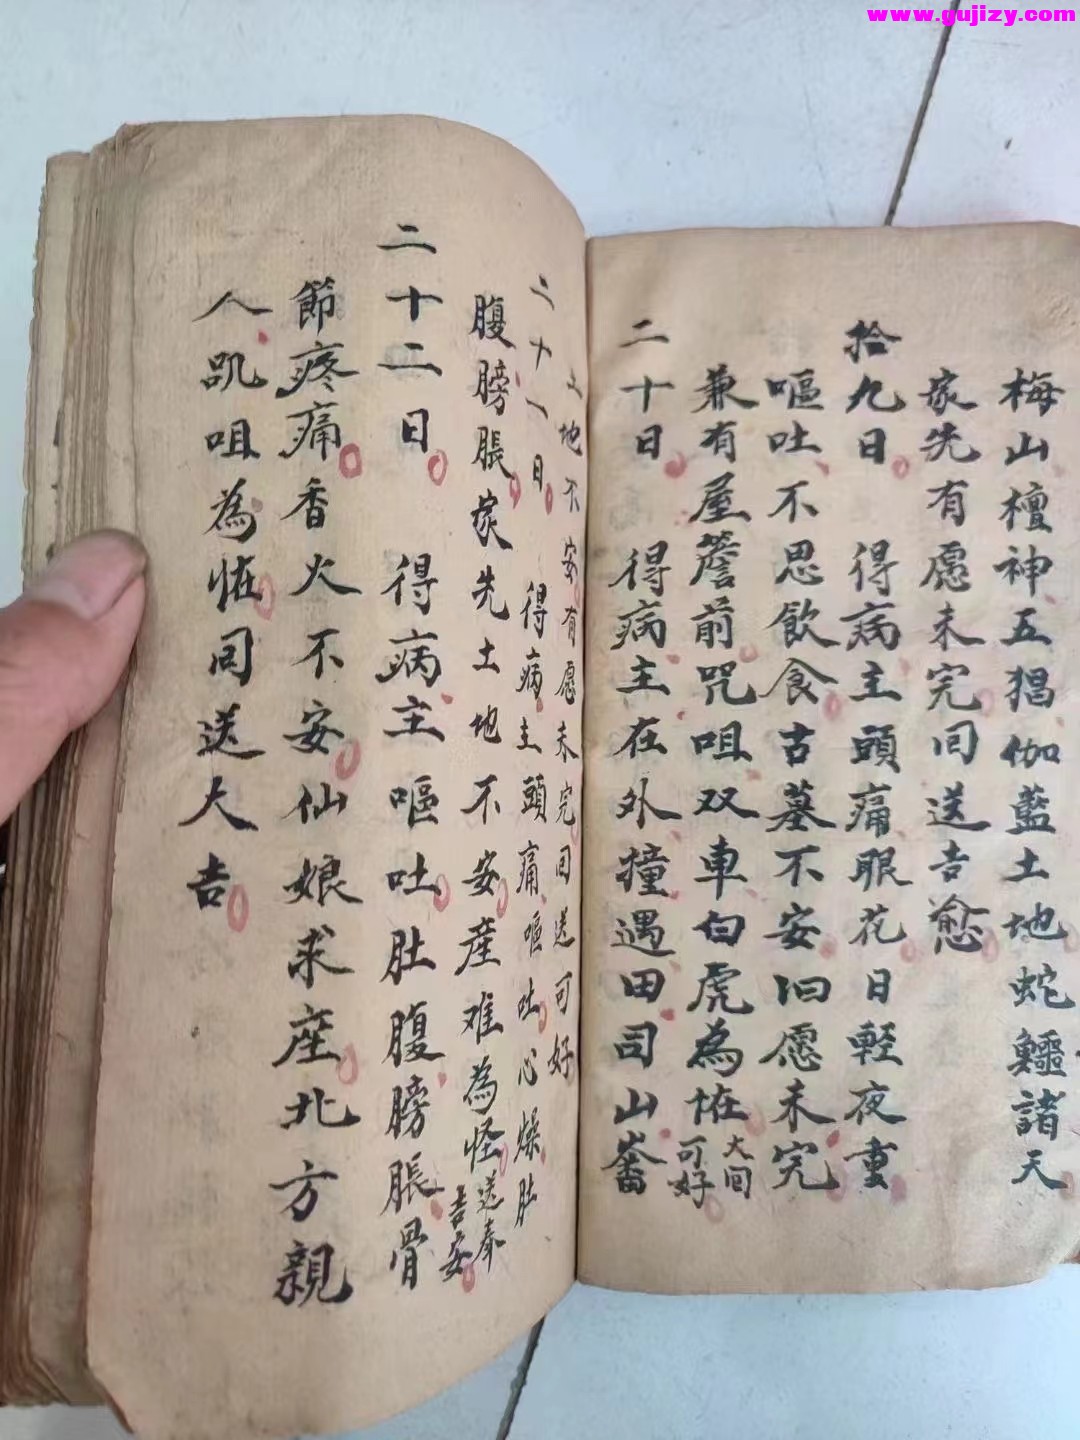 www.gujizy.com
梅山檀神五猖伽藍土地蛇鱷諸天
家先有愿未完囘送吉愈
拾九日 得病主頭痛眼花日輕夜重
嘔吐不思飲食古墓不安旧愿未完
兼有屋簷前咒咀双車白虎為恠大囘可好
二十日 得病主在外撞遇田司山
土地不安有愿未完囘送可好
二十一日 得病主頭痛嘔吐心燥肚
腹膀脹家先土地不安産难為怪送奉吉安
二十二日 得病主嘔吐肚腹膀脹骨
節疼痛香火不安仙娘求座北方親
人咒咀為恠囘送大吉